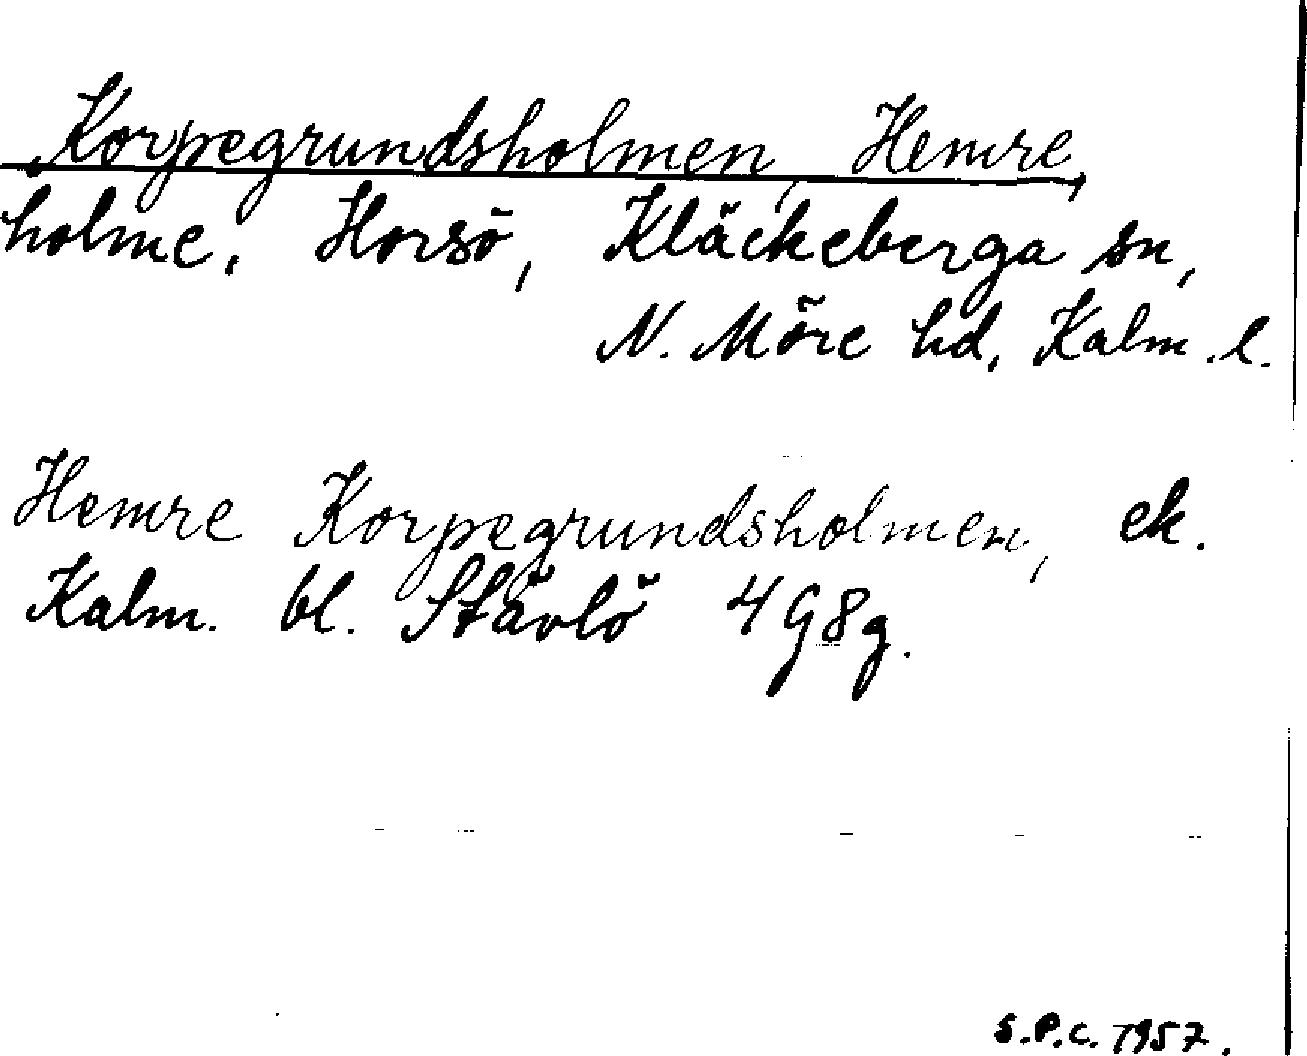 Korpegrundsholmen, Hemre,
holme, Horsö, Kläckeberga sn,
N. Möre hd, Kalm. l.
Hemre Korpegrundsholmen, ek.
Kalm. bl. Stävlö 4G8g.
S.P.C. 1957.